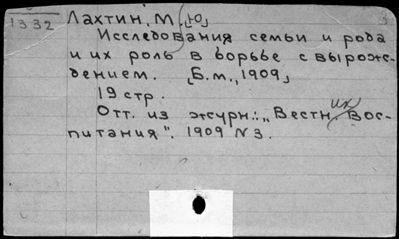 1332
Лахтин, М. [Ю]
Исследования семьи и рода
и их роль в борьбе с вырож-
дением. [Б.м., 1909]
19 стр.
Отт. из журн.: „Вестн. Вос-
питания". 1909 N 3.